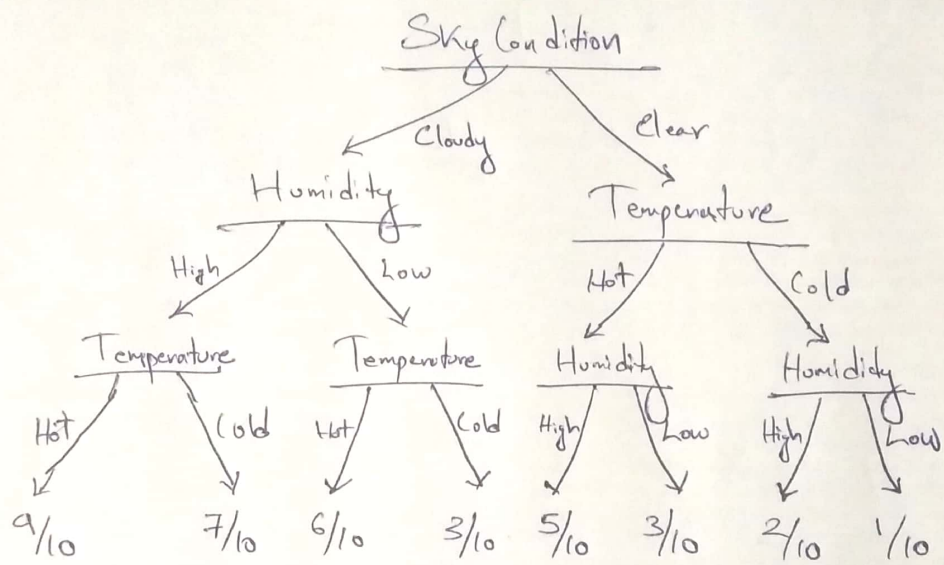 Sky Condition
Cloudy Clear
Humidity Temperature
High Low Hot Cold
Temperature Temperature Humidity Humididy
Hot Cold Hot Cold High Low High Low
9/10 7/10 6/10 3/10 5/10 3/10 2/10 1/10